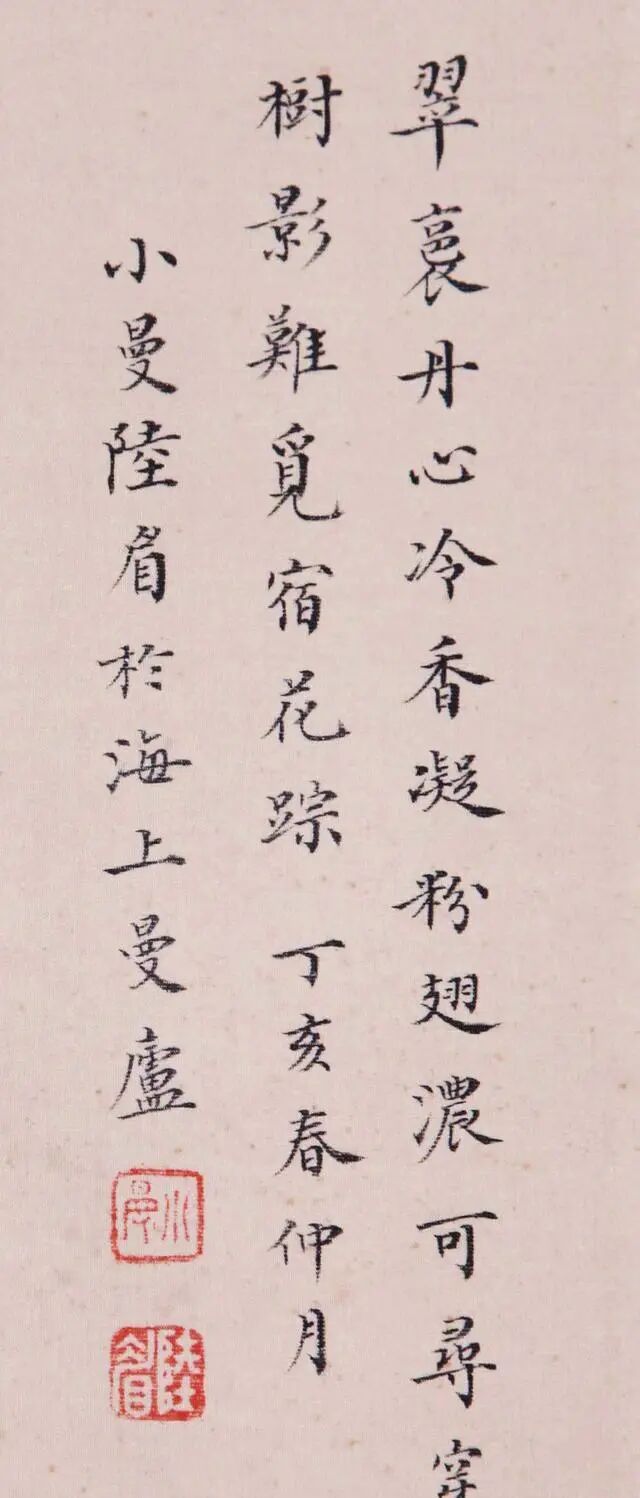 翠裛丹心冷香凝粉翅濃可尋穿
樹影難覓宿花踪 丁亥春仲月
小曼陸眉於海上曼廬
小曼
陸眉